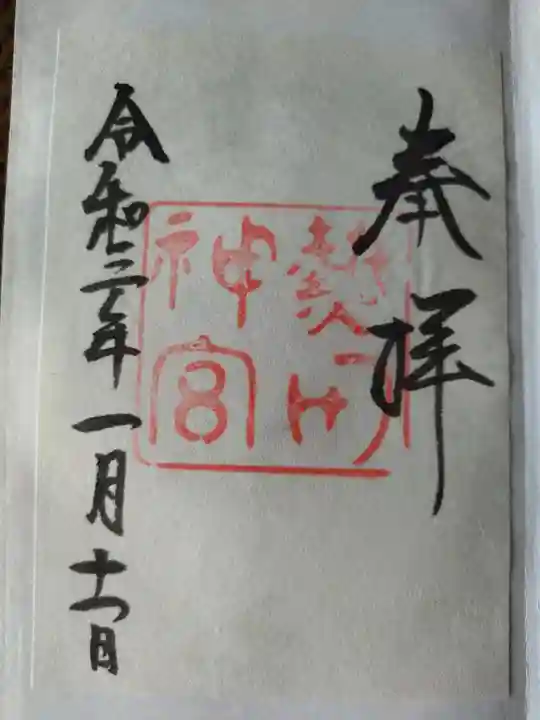 奉拝
熱田
神宮
令和三年一月十一日